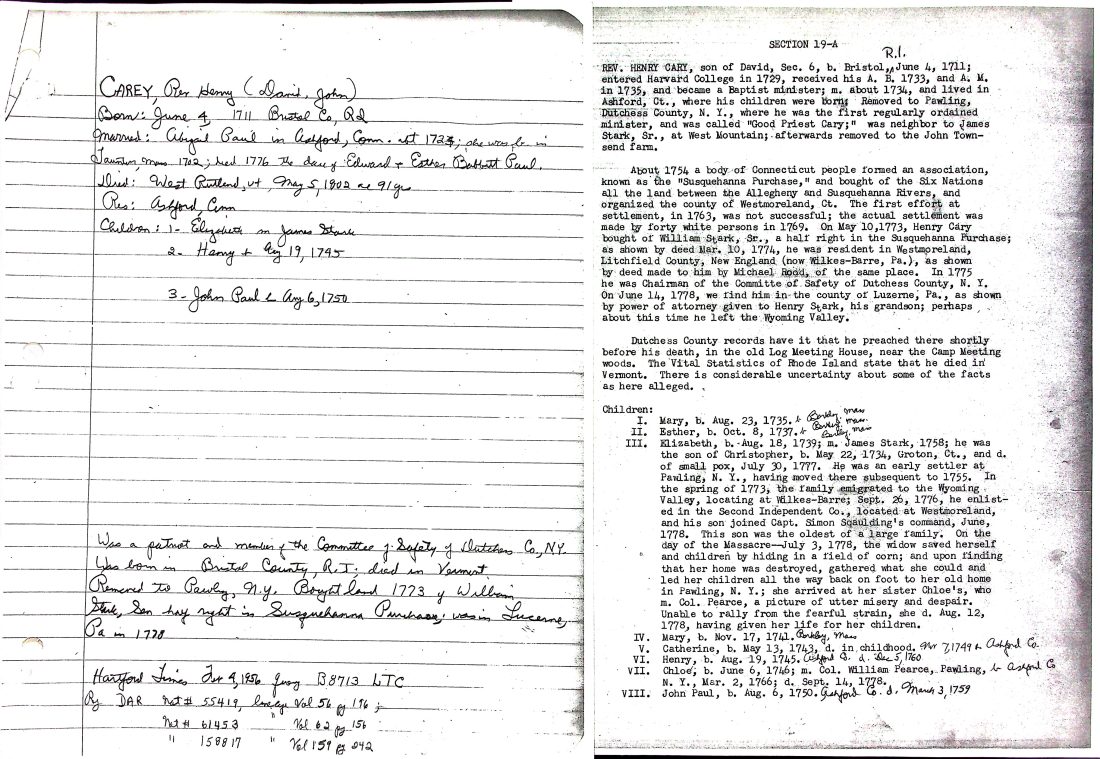 CAREY, Rev Henry (David, John)
Born: June 4, 1711 Bristol Co, RI
Married: Abigail Paul in Ashford, Conn. abt 1733; she was b. in
Taunton, Mass 1702; died 1776 the dau of Edward + Esther Babbitt Paul.
Died: West Rutland, Vt, May 5, 1802 ae 91 yrs
Res: Ashford, Conn
Children: 1- Elizabeth m James Stark
2- Henry b Aug 19, 1745
3- John Paul b Aug 6, 1750
Was a patriot and member of the Committee of Safety of Dutchess Co, N.Y.
Was born in Bristol County, R.I; died in Vermont.
Removed to Pawling, N.Y. Bought land 1773 of William
Stark, Sen half right in Susquehanna Purchase; was in Luzerne,
Pa in 1778
Hartford Times Feb 4, 1956 query B8713 LTC
By DAR Nat# 55419, lineage Vol 56 pg 176;
Nat# 61453 " Vol 62 pg 156
" 158817 " Vol 159 pg 242
SECTION 19-A
R.I.
REV. HENRY CARY, son of David, Sec. 6, b. Bristol, June 4, 1711;
entered Harvard College in 1729, received his A. B. 1733, and A. M.
in 1735, and became a Baptist minister; m. about 1734, and lived in
Ashford, Ct., where his children were born; Removed to Pawling,
Dutchess County, N. Y., where he was the first regularly ordained
minister, and was called "Good Priest Cary;" was neighbor to James
Stark, Sr., at West Mountain; afterwards removed to the John Town-
send farm.
About 1754 a body of Connecticut people formed an association,
known as the "Susquehanna Purchase," and bought of the Six Nations
all the land between the Allegheny and Susquehanna Rivers, and
organized the county of Westmoreland, Ct. The first effort at
settlement, in 1763, was not successful; the actual settlement was
made by forty white persons in 1769. On May 10,1773, Henry Cary
bought of William Stark, Sr., a half right in the Susquehanna Purchase;
as shown by deed Mar. 10, 1774, he was resident in Westmoreland,
Litchfield County, New England (now Wilkes-Barre, Pa.), as shown
by deed made to him by Michael Rood, of the same place. In 1775
he was Chairman of the Committe of Safety of Dutchess County, N. Y.
On June 14, 1778, we find him in the county of Luzerne, Pa., as shown
by power of attorney given to Henry Stark, his grandson; perhaps
about this time he left the Wyoming Valley.
Dutchess County records have it that he preached there shortly
before his death, in the old Log Meeting House, near the Camp Meeting
woods. The Vital Statistics of Rhode Island state that he died in
Vermont. There is considerable uncertainty about some of the facts
as here alleged.
Children:
I. Mary, b. Aug. 23, 1735. b Berkley Mass
II. Esther, b. Oct. 8, 1737. b Berkley Mass.
Berkley, Mass
III. Elizabeth, b. Aug. 18, 1739; m. James Stark, 1758; he was
the son of Christopher, b. May 22, 1734, Groton, Ct., and d.
of small pox, July 30, 1777. He was an early settler at
Pawling, N. Y., having moved there subsequent to 1755. In
the spring of 1773, the family emigrated to the Wyoming
Valley, locating at Wilkes-Barre; Sept. 26, 1776, he enlist-
ed in the Second Independent Co., located at Westmoreland,
and his son joined Capt. Simon Sqaulding's command, June,
1778. This son was the oldest of a large family. On the
day of the Massacre—July 3, 1778, the widow saved herself
and children by hiding in a field of corn; and upon finding
that her home was destroyed, gathered what she could and
led her children all the way back on foot to her old home
in Pawling, N. Y.; she arrived at her sister Chloe's, who
m. Col. Pearce, a picture of utter misery and despair.
Unable to rally from the fearful strain, she d. Aug. 12,
1778, having given her life for her children.
IV. Mary, b. Nov. 17, 1741. Berkley, Mass
V. Catherine, b. May 13, 1743, d. in childhood. Nov 7, 1749 b Ashford Co.
VI. Henry, b. Aug. 19, 1745. Ashford Co. d. Dec 5, 1760
VII. Chloe, b. June 6, 1746; m. Col. William Pearce, Pawling, b Ashford Co
N. Y., Mar. 2, 1766; d. Sept. 14, 1778.
VIII. John Paul, b. Aug. 6, 1750. Ashford Co. d. March 3, 1759